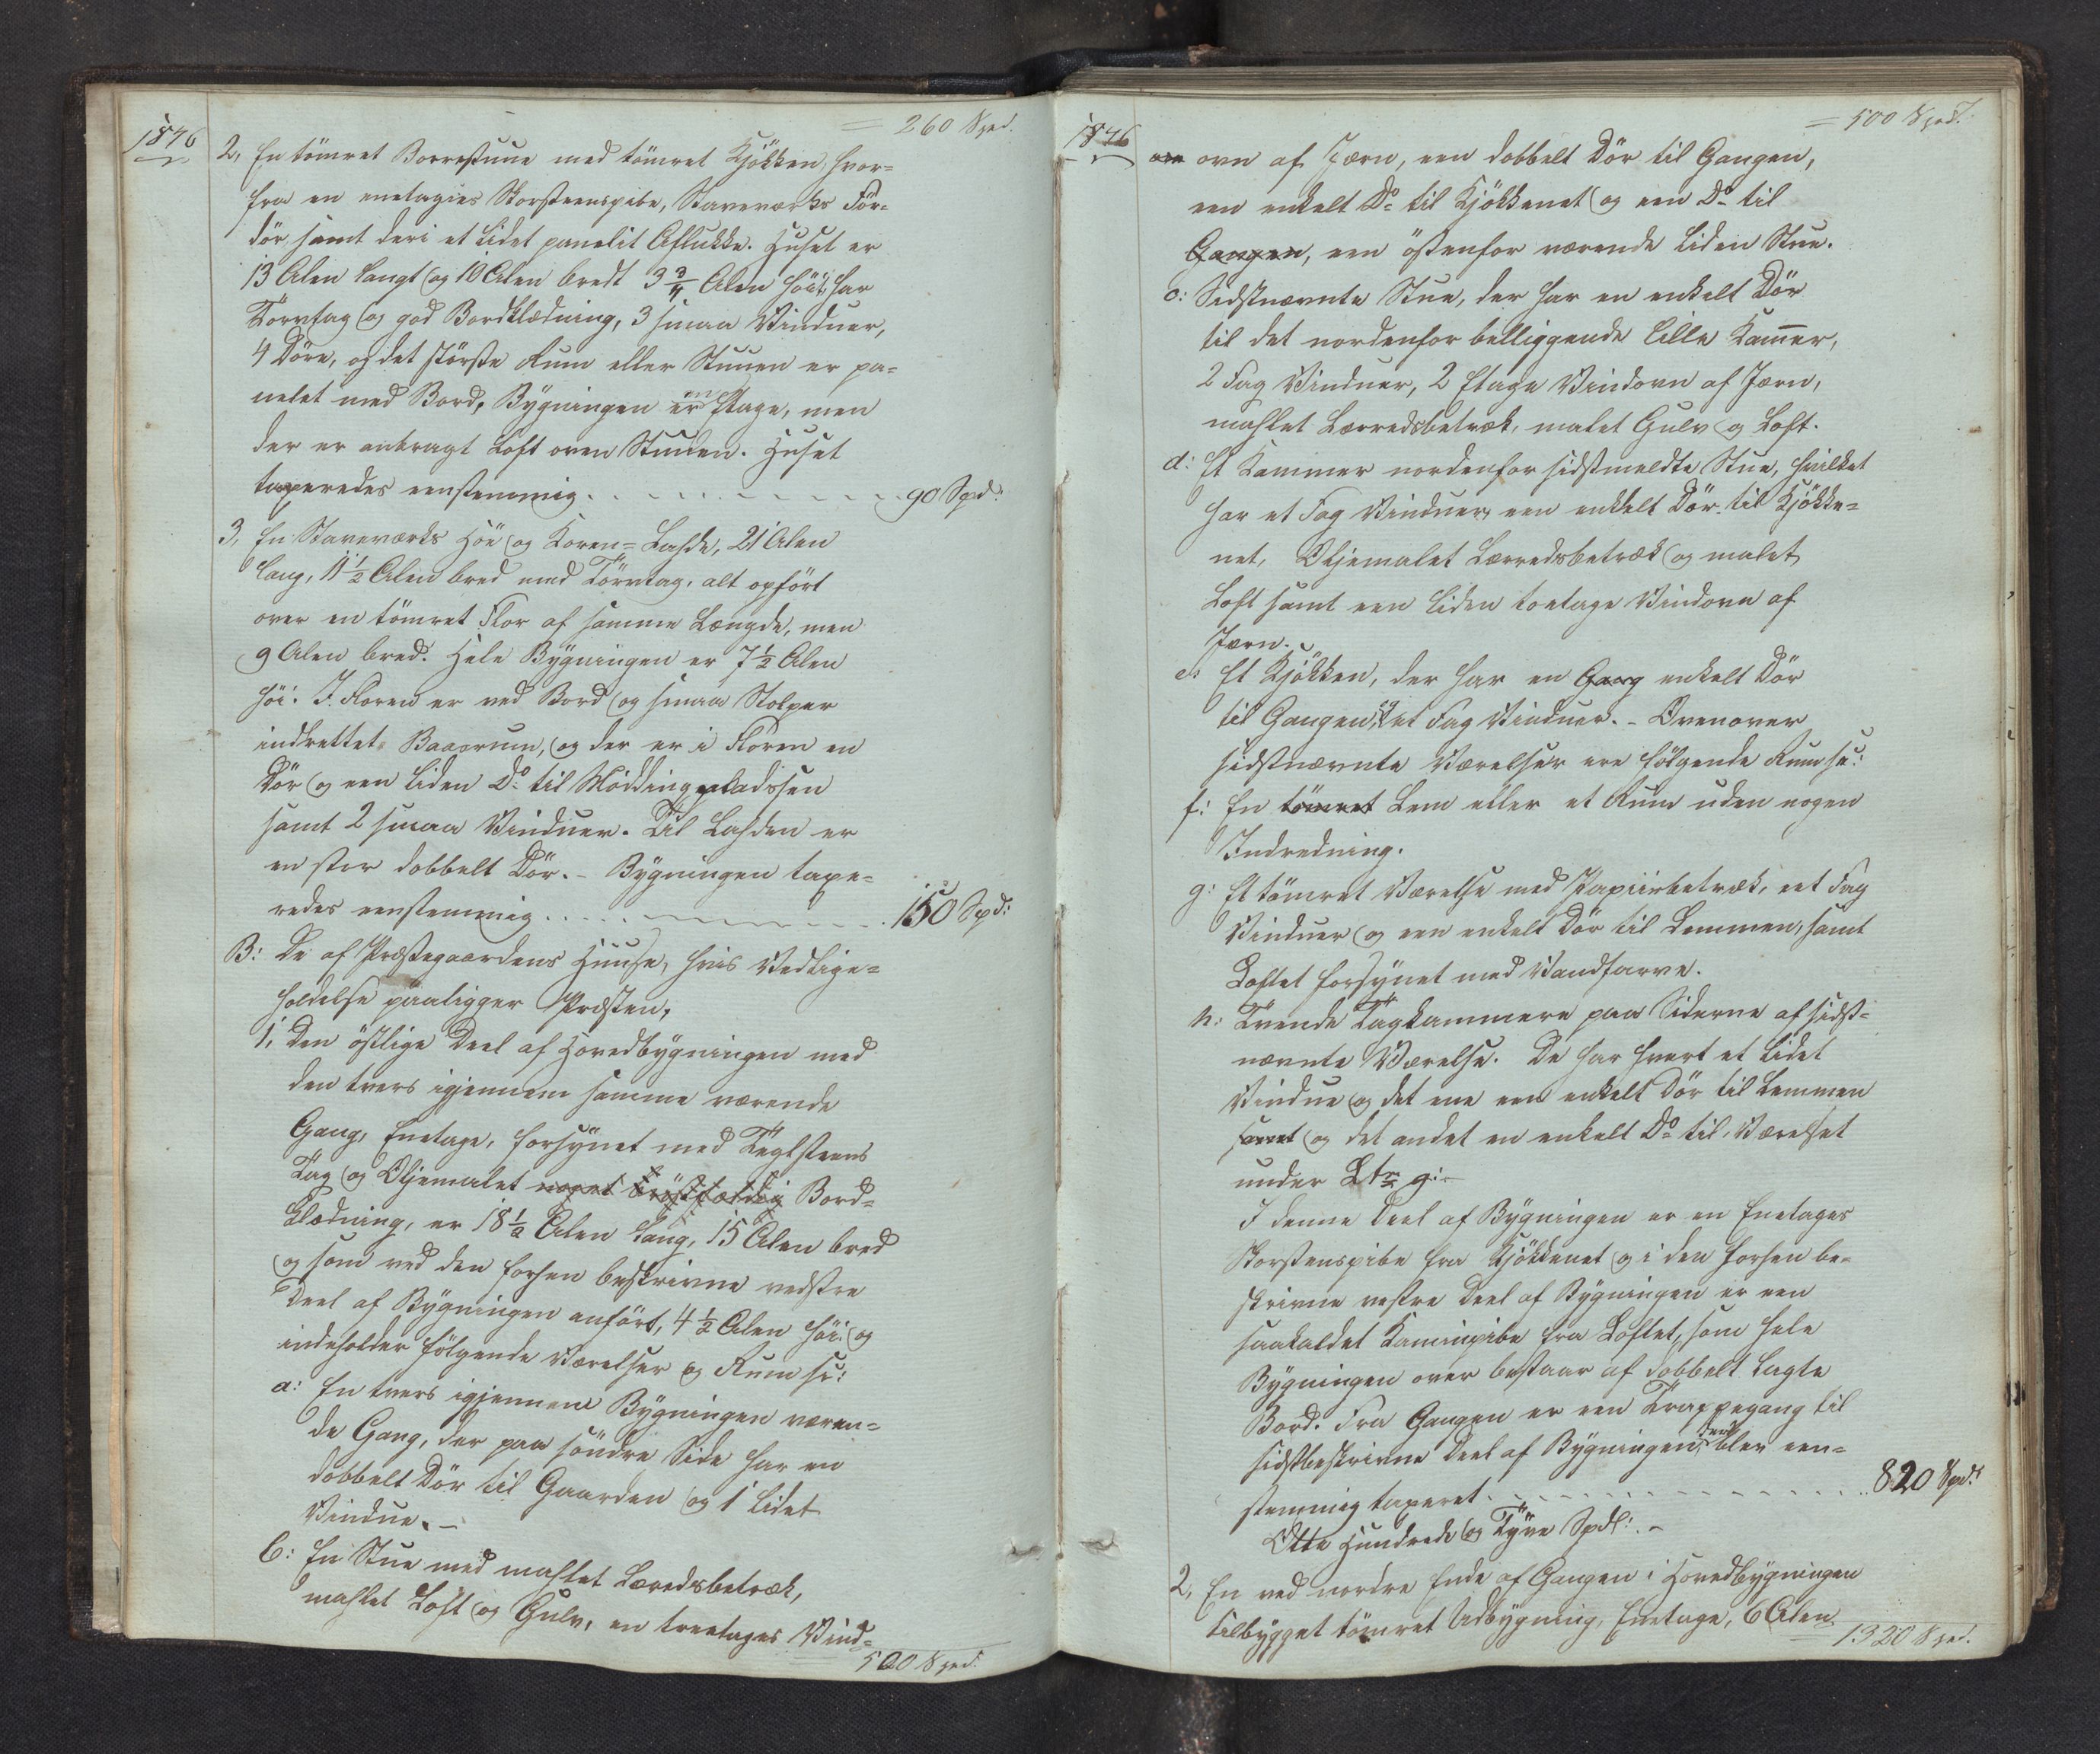 1846
= 260 Spd.
2, En tömret Borrestuue med tömret Kjökken, hvor-
fra en enetagies Skorsteenspibe, Staveværks För-
dör samt deri et lidet panelit Aflukke. Huset er
13 Alen langt og 10 Alen bredt 3 3/4 Alen höit, har
Törvtag og god Bordklædning, 3 smaa Vinduer,
4 Döre, og det störste Rum eller Stuuen er pa-
nelet med Bord, Bygningen er en Etage, men
der er anbragt Loft oven Stuuen. Huset
taxeredes eenstemmig . . . . . . 90 Spd:
3, En Staveværks Höe og Koren-Lahde, 21 Alen
lang, 11 1/2 Alen bred med Törvtag, alt opfört
over en tömret Flor af samme Længde, men
9 Alen bred. Hele Bygningen er 7 1/2 Alen
höi. I Floren er ved Bord og smaa Stolper
indrettet Baaserum, og der er i Floren en
Dör og een liden Do til Möddingpladssen
samt 2 smaa Vinduer. Til Lahden er
en stor dobbelt Dör. - Bygningen taxe-
redes eenstemmig . . . . . . 150 Spd:
B: De af Præstegaardens Huuse, hvis Vedlige-
holdelse paaligger Præsten,
1, Den östlige Deel af Hovedbygningen med
den tvers igjennem samme værende
Gang, Enetage, forsynet med Teglsteens
Tag og Oljemalet noget Bröstfældig Bord-
klædning, er 18 1/2 Alen lang, 15 Alen bred
og som ved den forhen beskrivne vestre
Deel af Bygningen anfört, 4 1/2 Alen höi og
indeholder fölgende Værelser og Rum se:
a: En tvers igjennem Bygningen væren-
de Gang, der paa söndre Side har en
dobbelt Dör til Gaarden og 1 lidet
Vindue. -
b: En Stue med mahlet Læredsbetræk,
mahlet Loft og Gulv, en treetages Vind-
500 Spd.
1846
= 500 Spd.
ovn af Jærn, een dobbelt Dör til Gangen,
een enkelt Do til Kjökkenet og een Do til
Gangen, een östenfor værende liden Stue.
c: Sidstnævnte Stue, der har en enkelt Dör
til det nordenfor belliggende lille Kammer,
2 Fag Vinduer, 2 Etage Vindovn af Jærn,
mahlet Lærredsbetræk, malet Gulv og Loft.
d: Et Kammer nordenfor sidstmeldte Stue, hvilket
har et Fag Vinduer, een enkelt Dör til Kjökke-
net, Oljemalet Lærredsbetræk og malet
Loft samt een liden toetage Vindovn af
Jærn.
e: Et Kjökken, der har en Gang enkelt Dör
til Gangen og et Fag Vinduer. - Ovenover
sidstnævnte Værelser ere fölgende Rum se:
f: En tömret Lem eller et Rum uden nogen
Indredning.
g: Et tömret Værelse med Papiirbetræk, eet Fag
Vinduer og een enkelt Dör til Lemmen, samt
Loftet forsynet med Vandfarve.
h: Tvende Tagkammere paa Siderne af sidst-
nævnte Værelse. De har hvert et lidet
Vindue og det ene een enkelt Dör til Lemmen
samt og det andet en enkelt Do til Værelset
under Ltr g: -
I denne Deel af Bygningen er en Enetages
Skorstenspibe fra Kjökkenet og i den forhen be-
skrivne vestre Deel af Bygningen er een
saakaldet Kaminpibe fra Loftet, som hele
Bygningen over bestaar af dobbelt lagte
Bord. Fra Gangen er een Trappegang til
sidstbeskrivne Deel af Bygningen, blev een-
stemmig taxeret . . . . . . 820 Spd:
Otte Hundrede og Tyve Spdl: -
2, En ved nordre Ende af Gangen i Hovedbygningen
tilbygget tömret Udbygning, Enetage, 6 Alen
1320 Spd.